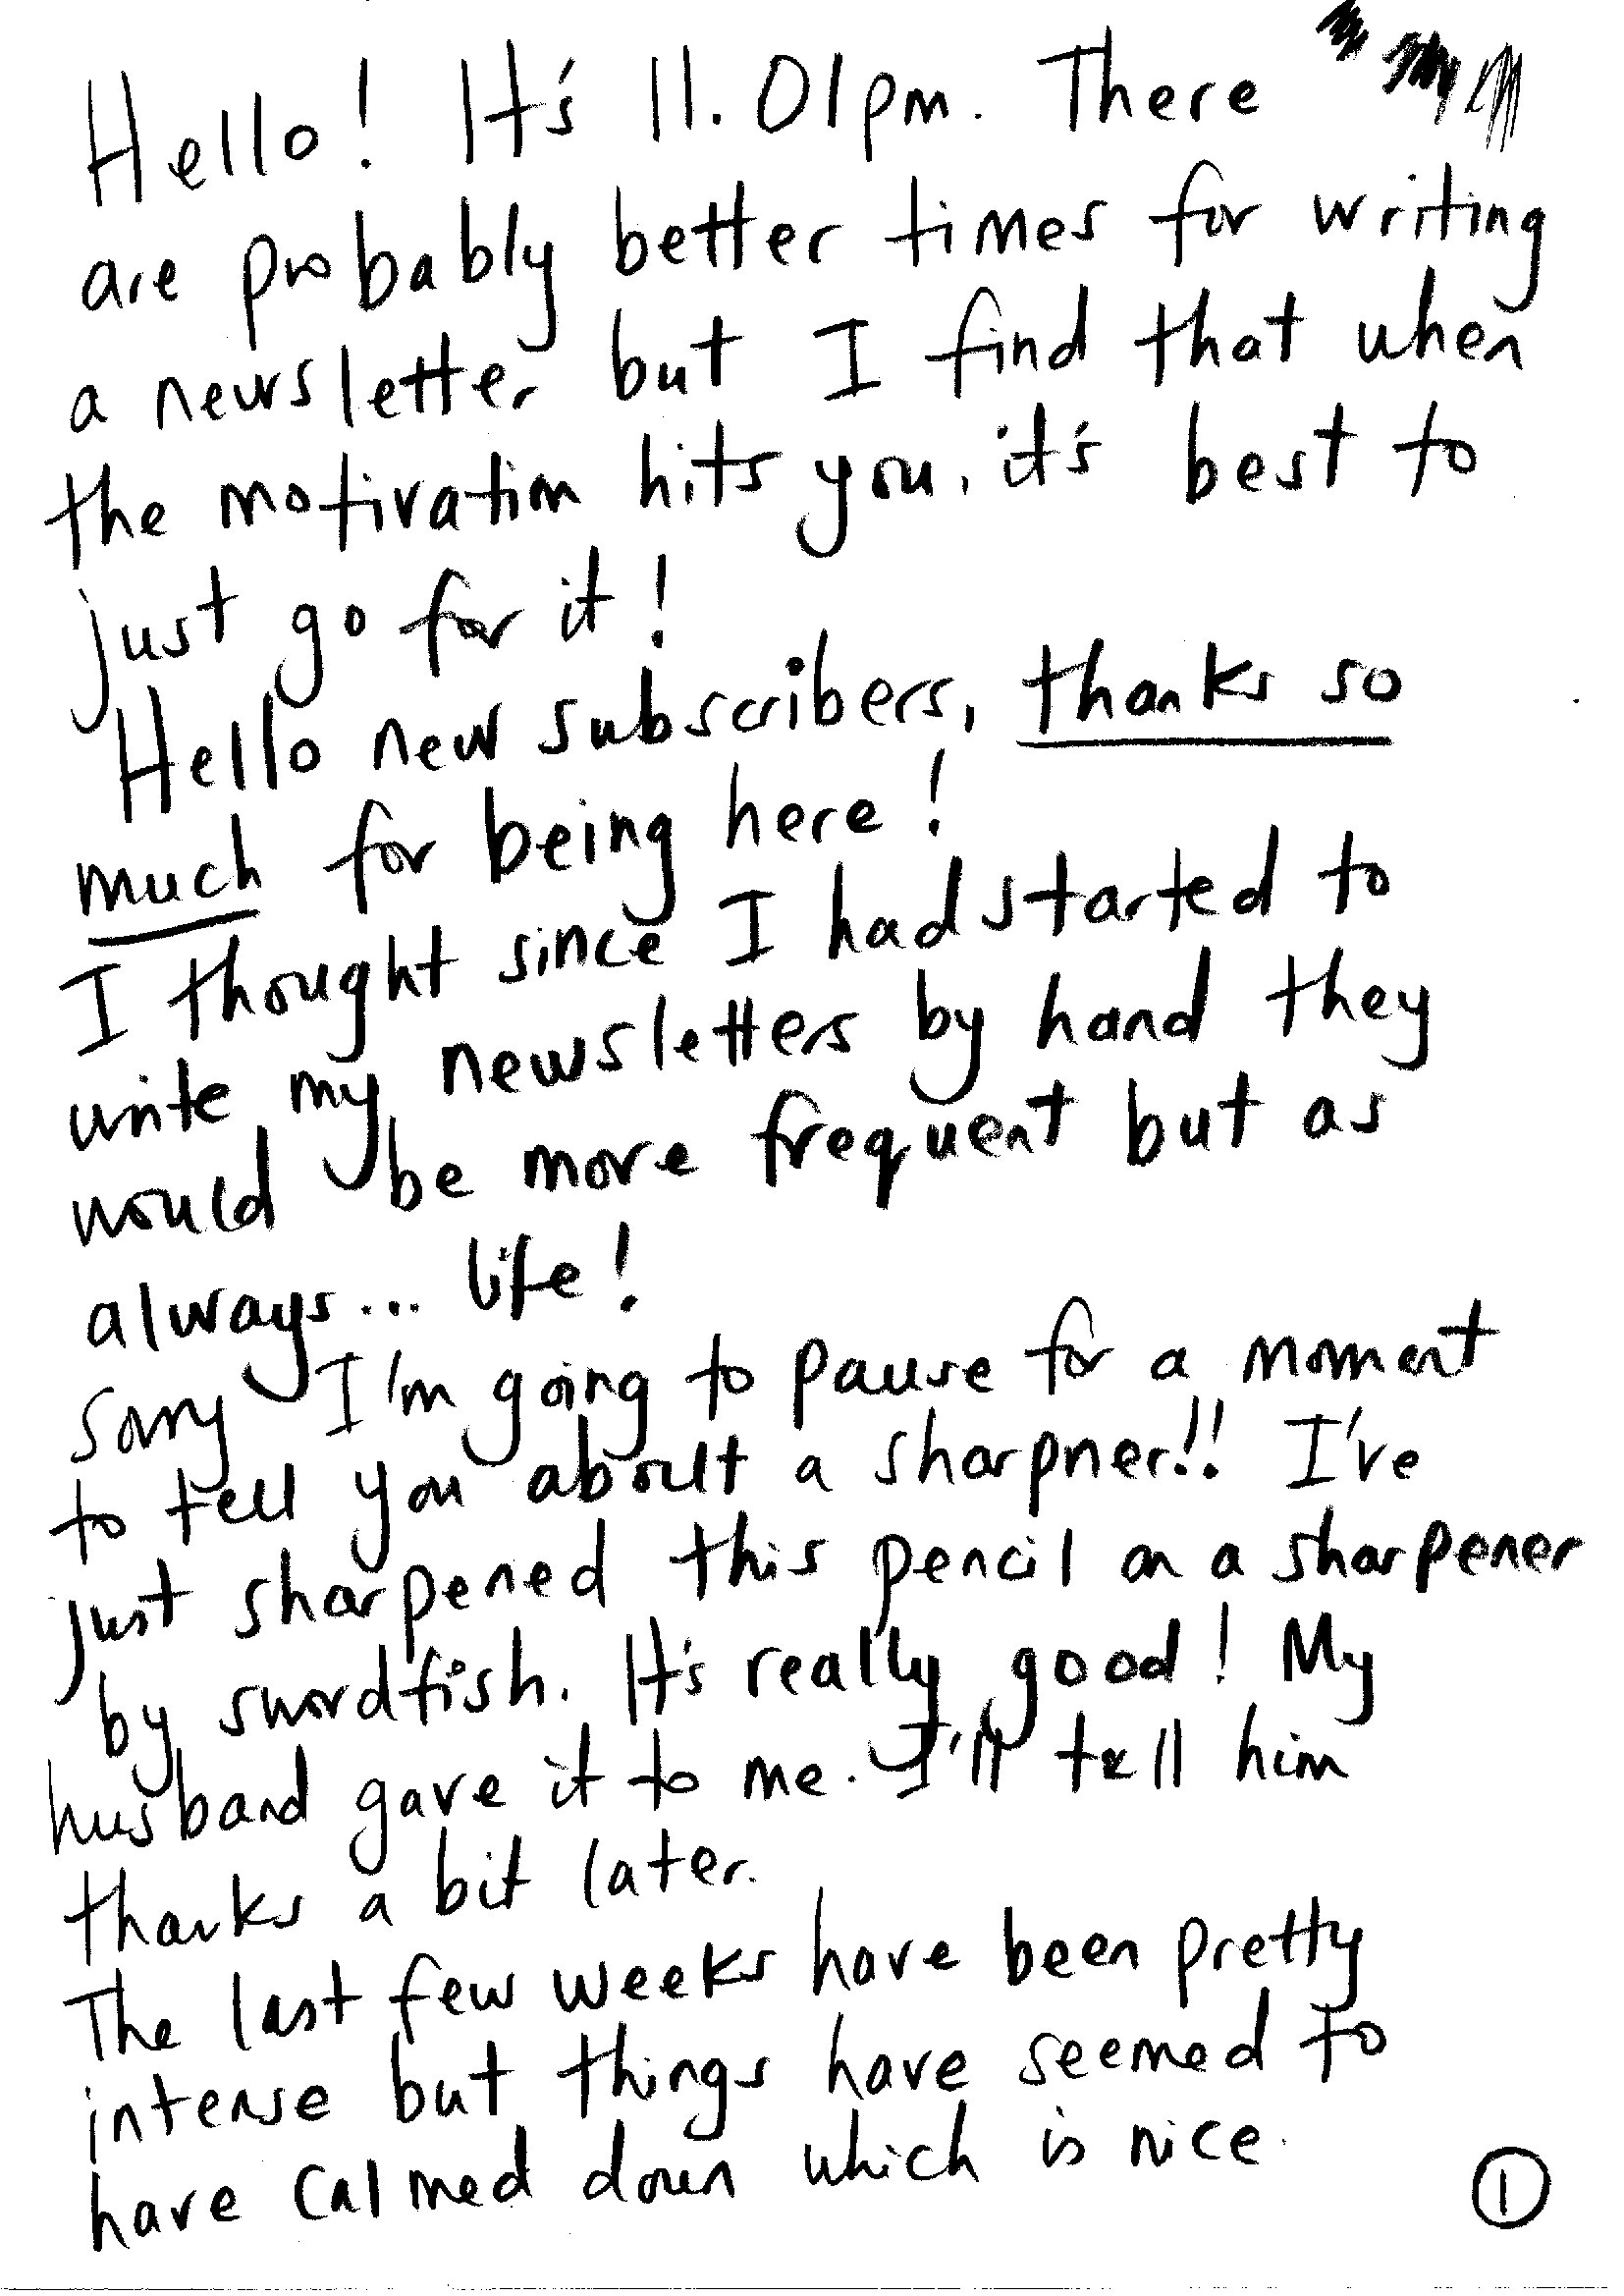 Hello! It's 11.01pm. There
are probably better times for writing
a newsletter but I find that when
the motivation hits you, it's best to
just go for it!
Hello new subscribers, thanks so
much for being here!
I thought since I had started to
write my newsletters by hand they
would be more frequent but as
always... life!
Sorry I'm going to pause for a moment
to tell you about a sharpner!! I've
just sharpened this pencil on a sharpener
by swordfish. It's really good! My
husband gave it to me. I'll tell him
thanks a bit later.
The last few weeks have been pretty
intense but things have seemed to
have calmed down which is nice.
1